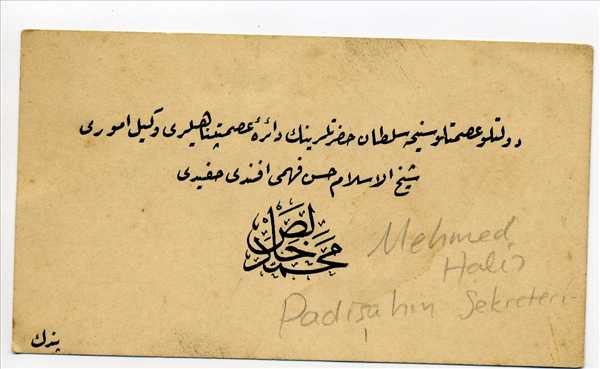 دولتلو عصمتلو سنیحه سلطان حضرتلرینك دائرۀ عصمتپناهیلری وكیل اموری
شیخ الاسلام حسن فهمی افندی حفیدی
محمد خالص
Mehmed
Halis
Padişahın Sekreteri
پندك